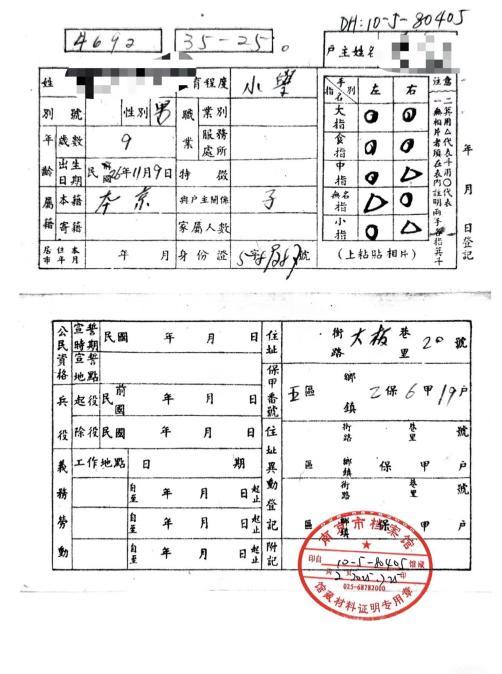 DH:10-5-80405
4692 35-25。
戶主姓名
姓 育程度 小學
別號 性別 男 職業 業別
年齡 歲數 9 服務處所
出生日期 民國 前 26年11月9日 特徵
屬籍 本籍 本京 與戶主關係 子
寄籍 家屬人數
居住本市年月 年 月 身份證 字 號
手別 指名 左 右
大指 ○ ○
食指 ○ ○
中指 ○ △
無名指 △ ○
小指 ○ △
(上粘貼相片)
注意
年 月 日登記
公民資格 宣誓時期 民國 年 月 日
宣誓地點
兵役 起役 民國 前 年 月 日
除役 民國 年 月 日
義務勞動 工作地點 日 期
自至 年 月 日 起止
自至 年 月 日 起止
自至 年 月 日 起止
住址 街路 大板巷 里 20 號
保甲番號 五區 鄉鎮 乙保 6甲 19戶
住址異動登記 街路 巷里 號
區 鄉鎮 保 甲 戶
街路 巷里 號
區 鄉鎮 保 甲 戶
附記
南京市档案馆
印自 10-5-80405 馆藏
025-68782000
馆藏材料证明专用章